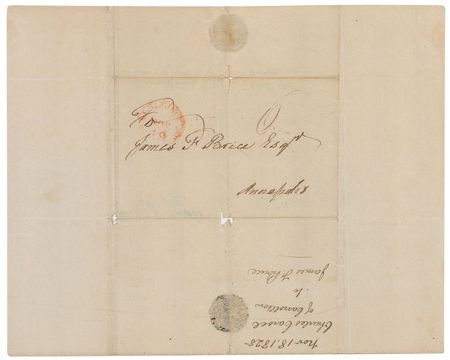 To
James F Brice Esqr
Annapolis
6
Nov 18. 1828
Charles Carroll
of Carrollton
to
James F Brice